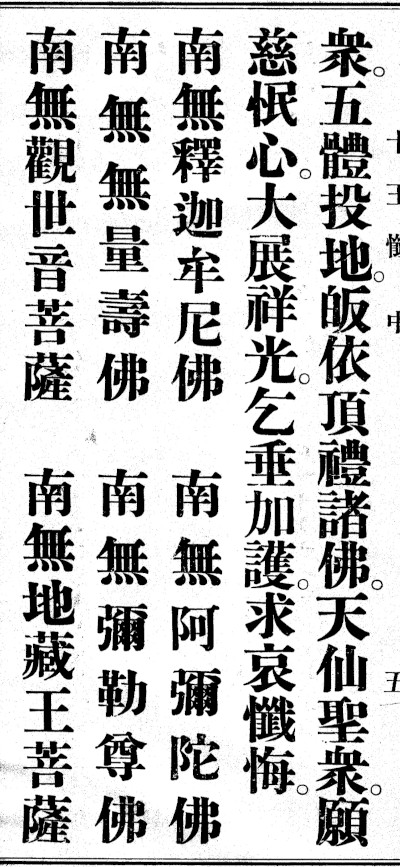 十王懺中 五
衆。五體投地。皈依頂禮諸佛。天仙聖衆。願
慈愍心。大展祥光。乞垂加護。求哀懺悔。
南無釋迦牟尼佛 南無阿彌陀佛
南無無量壽佛 南無彌勒尊佛
南無觀世音菩薩 南無地藏王菩薩